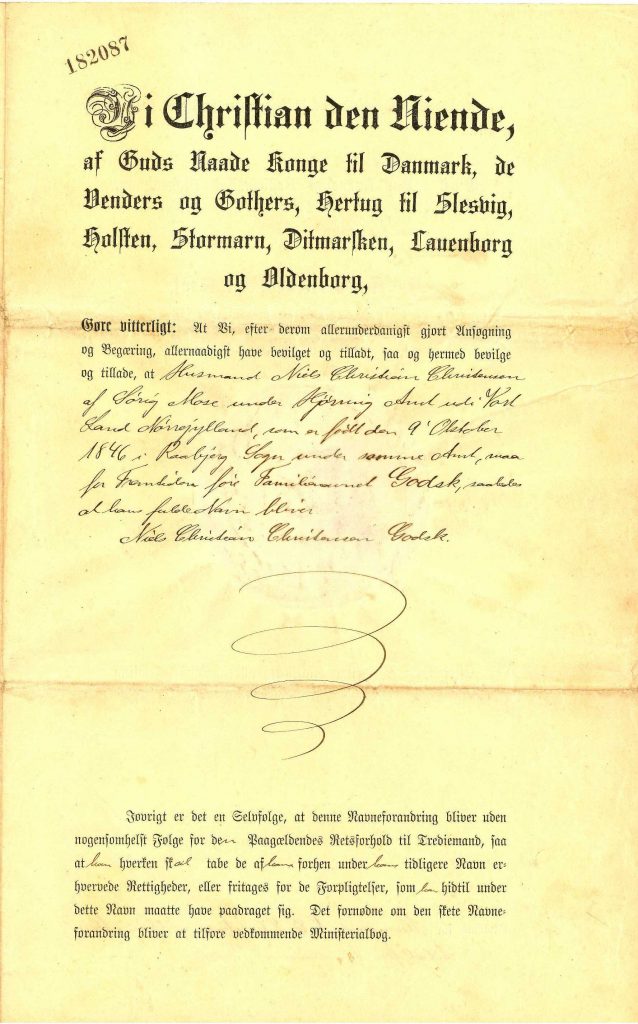 182087
Vi Christian den Niende,
af Guds Naade Konge til Danmark, de
Venders og Gothers, Hertug til Slesvig,
Holsten, Stormarn, Ditmarsken, Lauenborg
og Oldenborg,
Gøre vitterligt: At Vi, efter derom allerunderdanigst gjort Ansøgning
og Begæring, allernaadigst have bevilget og tilladt, saa og hermed bevilge
og tillade, at Husmand Niels Christian Christensen
af Sørig Mose under Hjørring Amt udi Vort
Land Nørrejylland, som er født den 9' Oktober
1846 i Raabjerg Sogn under samme Amt, maa
for Fremtiden føre Familienavnet Godsk, saaledes
at hans fulde Navn bliver
Niels Christian Christensen Godsk.
Iøvrigt er det en Selvfølge, at denne Navneforandring bliver uden
nogensomhelst Følge for den Paagældendes Retsforhold til Trediemand, saa
at han hverken skal tabe de af ham forhen under hans tidligere Navn er-
hvervede Rettigheder, eller fritages for de Forpligtelser, som han hidtil under
dette Navn maatte have paadraget sig. Det fornødne om den skete Navne-
forandring bliver at tilføre vedkommende Ministerialbog.